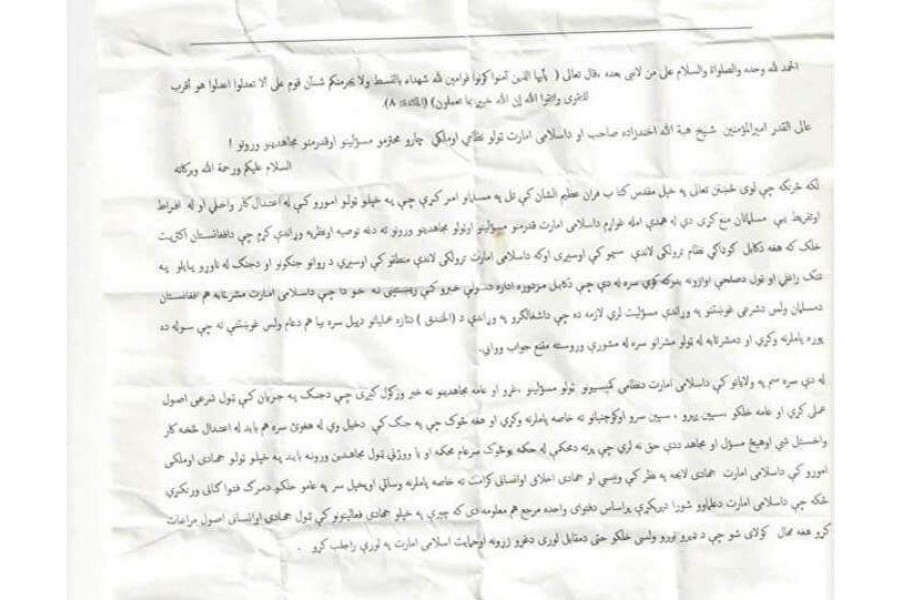 الحمد لله وحده والصلواة والسلام على من لانبي بعده ,قال تعالى ( يأيها الذين آمنوا كونوا قوامين لله شهداء بالقسط ولا يجرمنكم شنآن قوم على ألا تعدلوا اعدلوا هو أقرب
للتقوى واتقوا الله إن الله خبير بما تعملون) (المائدة: ٨).
عالی القدر امیرالمؤمنین شیخ هبة الله اخندزاده صاحب او داسلامی امارت ټولو نظامي اوملکي چارو محترمو مسؤلینو اوقدرمنو مجاهدینو وروڼو !
السلام علیکم ورحمة الله وبرکاته
لکه څرنګه چي لوی څښتن تعالی په خپل مقدس کتاب قران عظیم الشان کي تل په مسلمانو امر کړی چي په خپلو ټولو امورو کي له اعتدال کار واخلي او له افراط
اوتفریط یې مسلمانان منع کړی دي له همدې امله غواړم داسلامی امارت قدرمنو مسؤلینو اوټولو مجاهدینو وروڼو ته دغه توصیه اونظریه وړاندي کړم چي دافغانستان اکثریت
خلک که هغه دکابل کوداګي نظام ترولکي لاندي سیمو کي اوسیږی اوکه داسلامی امارت ترولکي لاندي مناطقو کي اوسیږي د روانو جنګونو او دجنګ له ناوړو پایلو په
تنګ راغلي او ټول دصلحي اوازونه پورته کوي سره له دې چي دکابل مزدوره اداره دسولي خبرو کي رښتیني نه خو دا چي داسلامی امارت مشرتابه هم افغانستان
دمسلمان ولس دشرعی غوښتنو په وړاندي مسؤلیت لري لازمه ده چي داشغالګرو په وړاندي د (الخندق ) دتازه عملیاتو دپیل سره سره بیا هم دعام ولس غوښتني ته چي سوله ده
پوره پاملرنه وکړي او دمشرتابه له ټولو مشرانو سره له مشورې وروسته مقنع جواب ووايي.
له دې سره سم په ولایاتو کي داسلامی امارت دنظامی کمیسیونو ټولو مسؤلینو ,غړو او عامه مجاهدینو ته خبر ورکول کیږی چي دجنګ په جریان کي ټول شرعی اصول
عملي کړي او عامه خلکو ,سپین ږیرو , سپین سرو اوکوچنیانو ته خاصه پاملرنه وکړي او هغه څوک چي په جګ کي دخیل وي له هغوئ سره هم باید له اعتدال څخه کار
واخستل شی اوهیڅ مسؤل او مجاهد ددې حق نه لري چي پرته دمحکمي له حکمه یوڅوک سرعام محکمه او یا ووژني ټول مجاهدین وروڼه باید په خپلو ټولو جهادی اوملکي
امورو کي داسلامی امارت جهادی لایحه په نظر کي ونیسی او جهادی اخلاق اوانسانی کرامت ته خاصه پاملرنه وساتي اوپخپل سر په عامو خلکو دمرګ فتوا ګاني ورنکړي
ځکه چي داسلامی امارت دعلماوو شورا دپریکړي پراساس دفتوای واحده مرجع هم معلومه ده که چیري په خپلو جهادی فعالیتونو کي ټول جهادی اوانسانی اصول مراعات
کړو هغه محال کولای شو چي د ډیرو نورو ولسی خلکو حتی دمقابل لوری دغړو زړونه اوحمایت اسلامی امارت په لورې راجلب کړو .